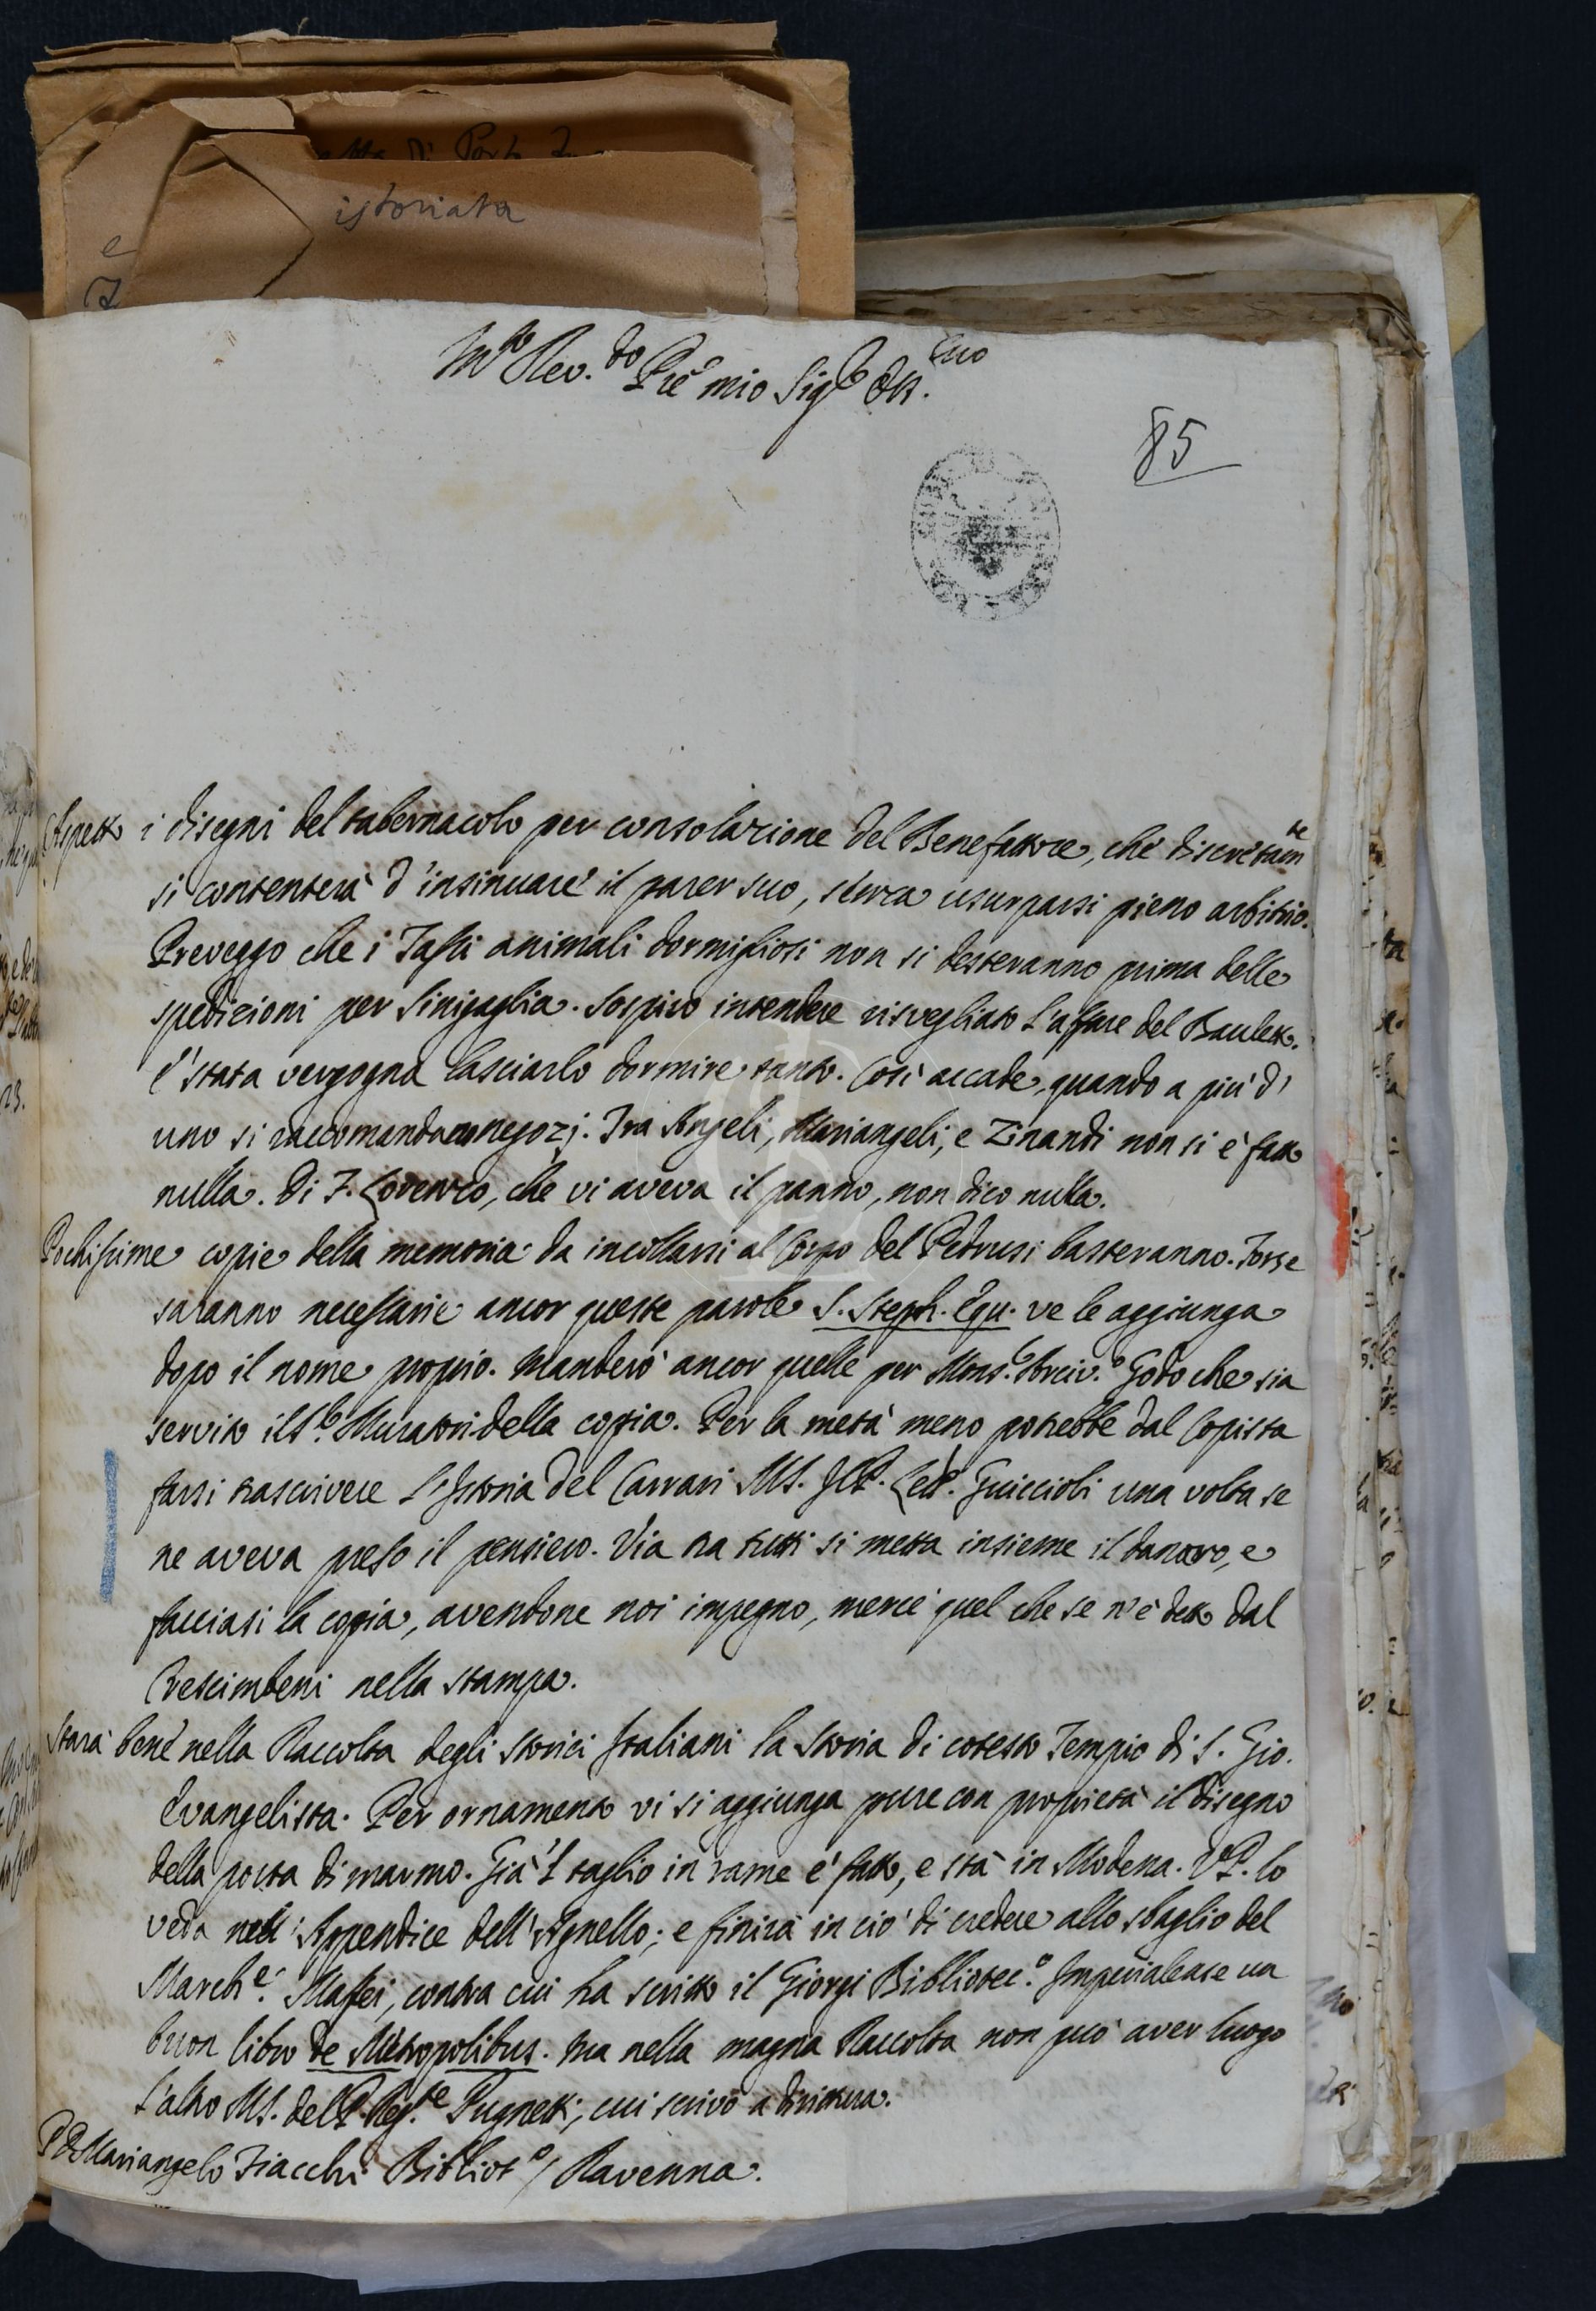 istoriata
e
M.to Rev.do Pre mio Sig.r Oss.mo
85
Aspetto i disegni del tabernacolo per consolazione del Benefattore, che discretam.te
si contenterà d'insinuare il parer suo, senza usurparsi pieno arbitrio.
Preveggo che i Tassi animali dormigliosi non si desteranno prima delle
spedizioni per Sinigaglia. Sospiro intendere risvegliato l'affare del Bauletto.
È stata vergogna lasciarlo dormire tanto. Così accade, quando a più d'
uno si raccomandano negozj. Tra Angeli, Mariangeli, e Zinandi non si è fatto
nulla. Di F. Lorenzo, che vi aveva il panno, non dico nulla.
Pochissime copie della memoria da incollarsi al Corpo del Pedrusi basteranno. Forse
saranno necessarie ancor queste parole S. Steph. Equ. ve le aggiunga
dopo il nome proprio. Manderò ancor quelle per Mons.r Arciv.o Godo che sia
servito il S.r Muratori della copia. Per la metà meno potrebbe dal Copista
farsi trascrivere l'Istoria del Carrari MS. Il P. Guiccioli una volta se
ne aveva preso il pensiero. Via tra tutti si metta insieme il danaro, e
facciasi la copia, avendone noi impegno, mercè quel che se n'è detto dal
Crescimbeni nella stampa.
Starà bene nella Raccolta degli Storici Italiani la Storia di cotesto Tempio di S. Gio.
Evangelista. Per ornamento vi si aggiunga pure con proprietà il disegno
della porta di marmo. Già 'l taglio in rame è fatto, e sta in Modena. V.P. lo
veda nell'Appendice dell'Agnello; e finirà in ciò di credere allo sbaglio del
March.e Maffei, contra cui ha scritto il Giorgi Bibliotec.o Imperialense un
buon libro de Metropolibus. Ma nella magna Raccolta non può aver luogo
l'altro MS. del P. Pugnetti, cui scrivo a dirittura.
P. D. Mariangelo Fiacchi Bibliot.o / Ravenna.